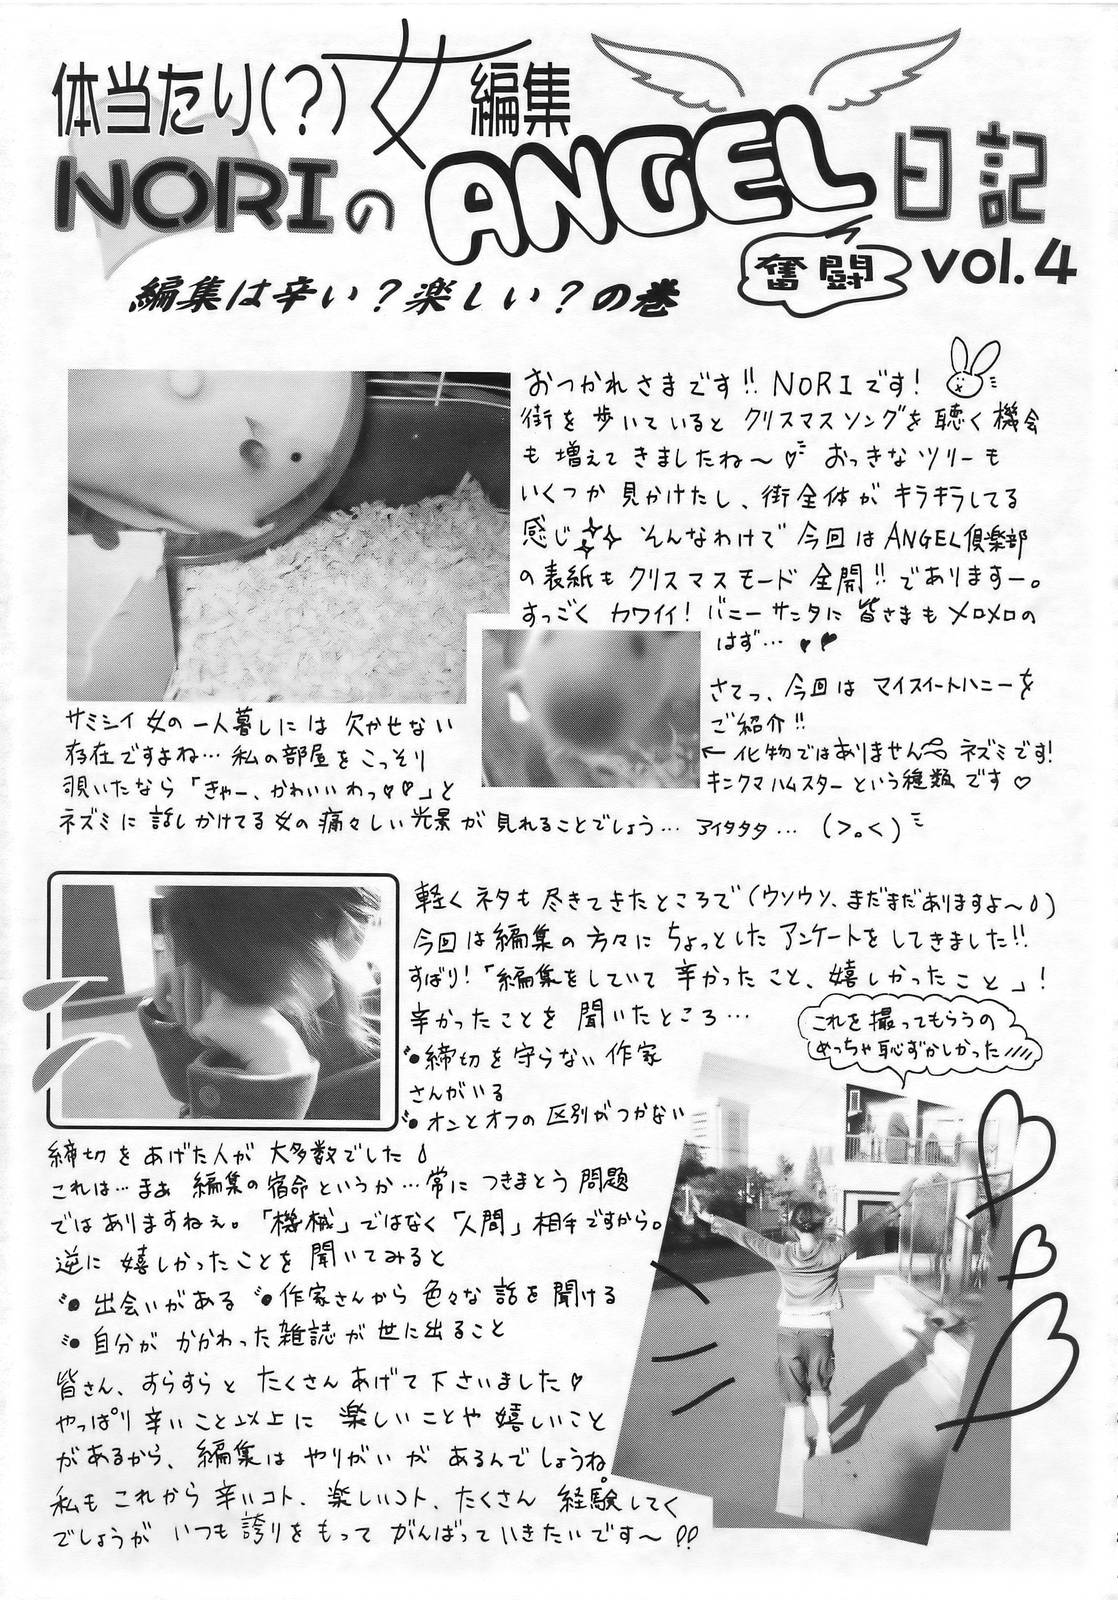 体当たり(?)女編集
NORIのANGEL日記
奮闘
vol.4
編集は辛い?楽しい?の巻
おつかれさまです!!NORIです!
街を歩いていると クリスマスソングを聴く機会
も増えてきましたね〜♡ おっきなツリーも
いくつか見かけたし、街全体がキラキラしてる
感じ そんなわけで今回はANGEL倶楽部
の表紙もクリスマスモード全開!!でありますー。
すっごくカワイイ!バニーサンタに皆さまもメロメロの
はず…♥♥
さてっ、今回はマイスイートハニーを
ご紹介!!
←化物ではありません ネズミです!
キンクマハムスターという種類です♡
サミシイ女の一人暮しには欠かせない
存在ですよね…私の部屋をこっそり
覗いたなら「きゃー、かわいいわっ♥♥」と
ネズミに話しかけてる女の痛々しい光景が見れることでしょう…アイタタタ…(>。<)
軽くネタも尽きてきたところで(ウソウソ、まだまだありますよ〜)
今回は編集の方々にちょっとしたアンケートをしてきました!!
ずばり!「編集をしていて辛かったこと、嬉しかったこと」!
辛かったことを聞いたところ…
●締切を守らない作家
さんがいる
●オンとオフの区別がつかない
これを撮ってもらうの
めっちゃ恥ずかしかった
締切をあげた人が大多数でした
これは…まぁ 編集の宿命というか…常につきまとう問題
ではありますねぇ。「機械」ではなく「人間」相手ですから。
逆に嬉しかったことを聞いてみると
●出会いがある ●作家さんから色々な話を聞ける
●自分がかかわった雑誌が世に出ること
皆さん、すらすらとたくさんあげて下さいました♡
やっぱり辛いこと以上に楽しいことや嬉しいこと
があるから、編集はやりがいがあるんでしょうね。
私もこれから辛いコト、楽しいコト、たくさん経験してく
でしょうがいつも誇りをもってがんばっていきたいです〜!!